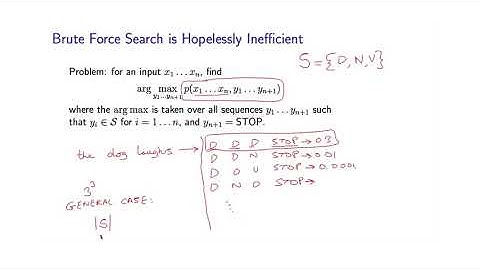 Brute Force Search is Hopelessly Inefficient
S = {D, N, V}
Problem: for an input x₁ … xₙ, find
arg max p(x₁ … xₙ, y₁ … yₙ₊₁)
y₁…yₙ₊₁
where the arg max is taken over all sequences y₁ … yₙ₊₁ such
that yᵢ ∈ 𝒮 for i = 1 … n, and yₙ₊₁ = STOP.
the dog laughs → D D D STOP → 0.3
D D N STOP → 0.01
D D V STOP → 0.0001
D N D STOP →
⋮
3³
GENERAL CASE:
|S|